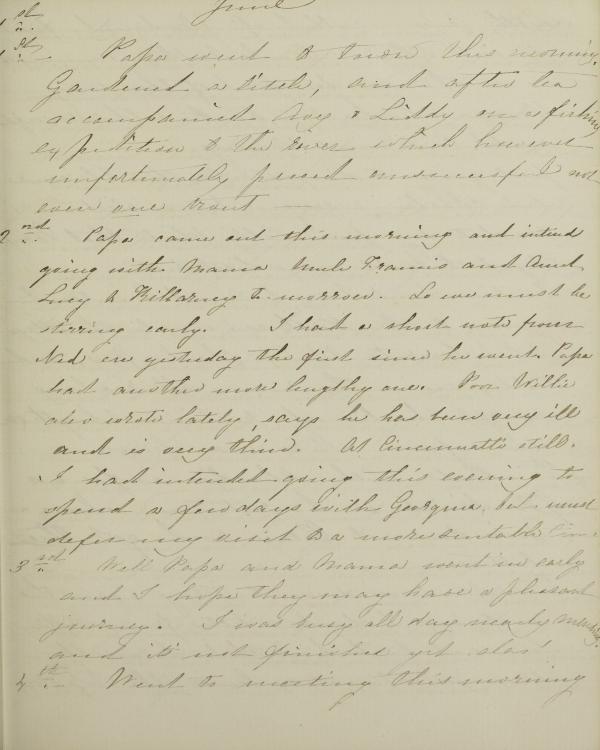 June
1st
1st Papa went to town this morning.
Gardened a little, and after tea
accompanied Avy & Liddy on a fishing
expedition to the river which however
unfortunately proved unsuccessful not
even one trout —
2nd Papa came out this morning and intend
going with Mama Uncle Francis and Aunt
Lucy to Killarney to-morrow. So we must be
stirring early. I had a short note from
Ned ere yesterday the first since he went. Papa
had another more lengthy one. Poor Willie
also wrote lately, says he has been very ill
and is very thin. At Cincinnatti still.
I had intended going this evening to
spend a few days with Georgina, but must
defer my visit to a more suitable time.
3rd Well Papa and Mama went in early
and I hope they may have a pleasant
journey. I was busy all day nearly
and it's not finished yet alas!
4th Went to meeting this morning